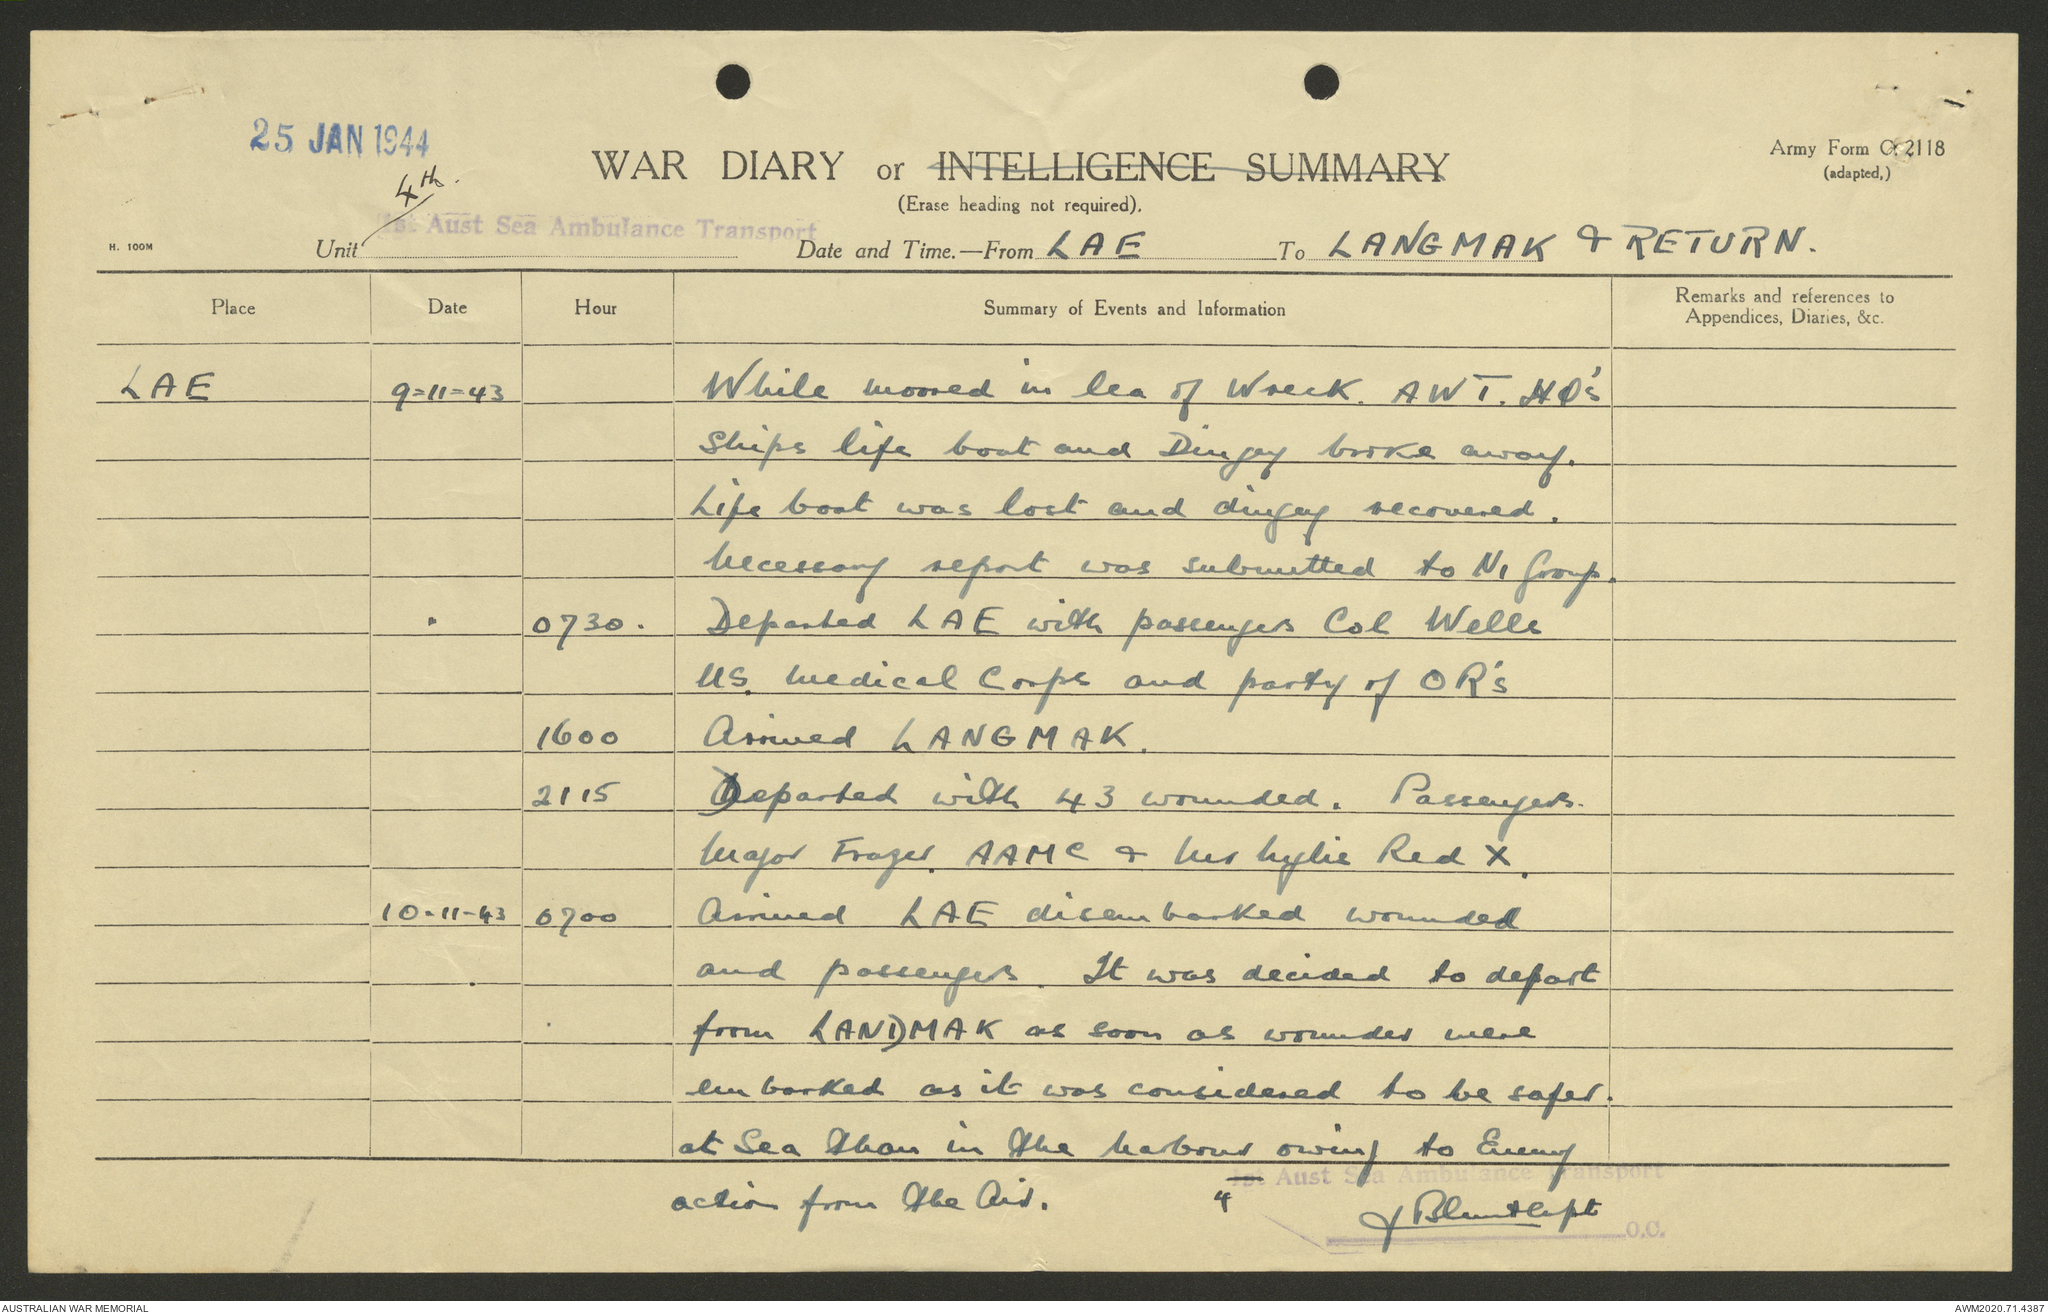 25 JAN 1944
WAR DIARY or INTELLIGENCE SUMMARY
Army Form C. 2118
(adapted,)
(Erase heading not required).
4th.
1st Aust Sea Ambulance Transport
H. 100M
Unit
Date and Time.—From LAE To LANGMAK & RETURN.
Place Date Hour Summary of Events and Information Remarks and references to Appendices, Diaries, &c.
LAE 9-11-43 While moored in lea of Wreck. AWT. HQ's
Ships life boat and Dingey broke away.
Life boat was lost and dingey recovered.
Necessary report was submitted to Group.
" 0730. Departed LAE with passengers Col Wells
US. Medical Corps and party of OR's
1600 Arrived LANGMAK.
2115 Departed with 43 wounded. Passengers.
Major Frazer. AAMC & Mr Red X.
10-11-43 0700 Arrived LAE disembarked wounded
and passengers. It was decided to depart
from LANDMAK as soon as wounded were
embarked as it was considered to be safer.
at Sea than in the harbour owing to Enemy
action from the Air.
4
1st Aust Sea Ambulance Transport
Capt
O.C.
AUSTRALIAN WAR MEMORIAL
AWM2020.71.4387